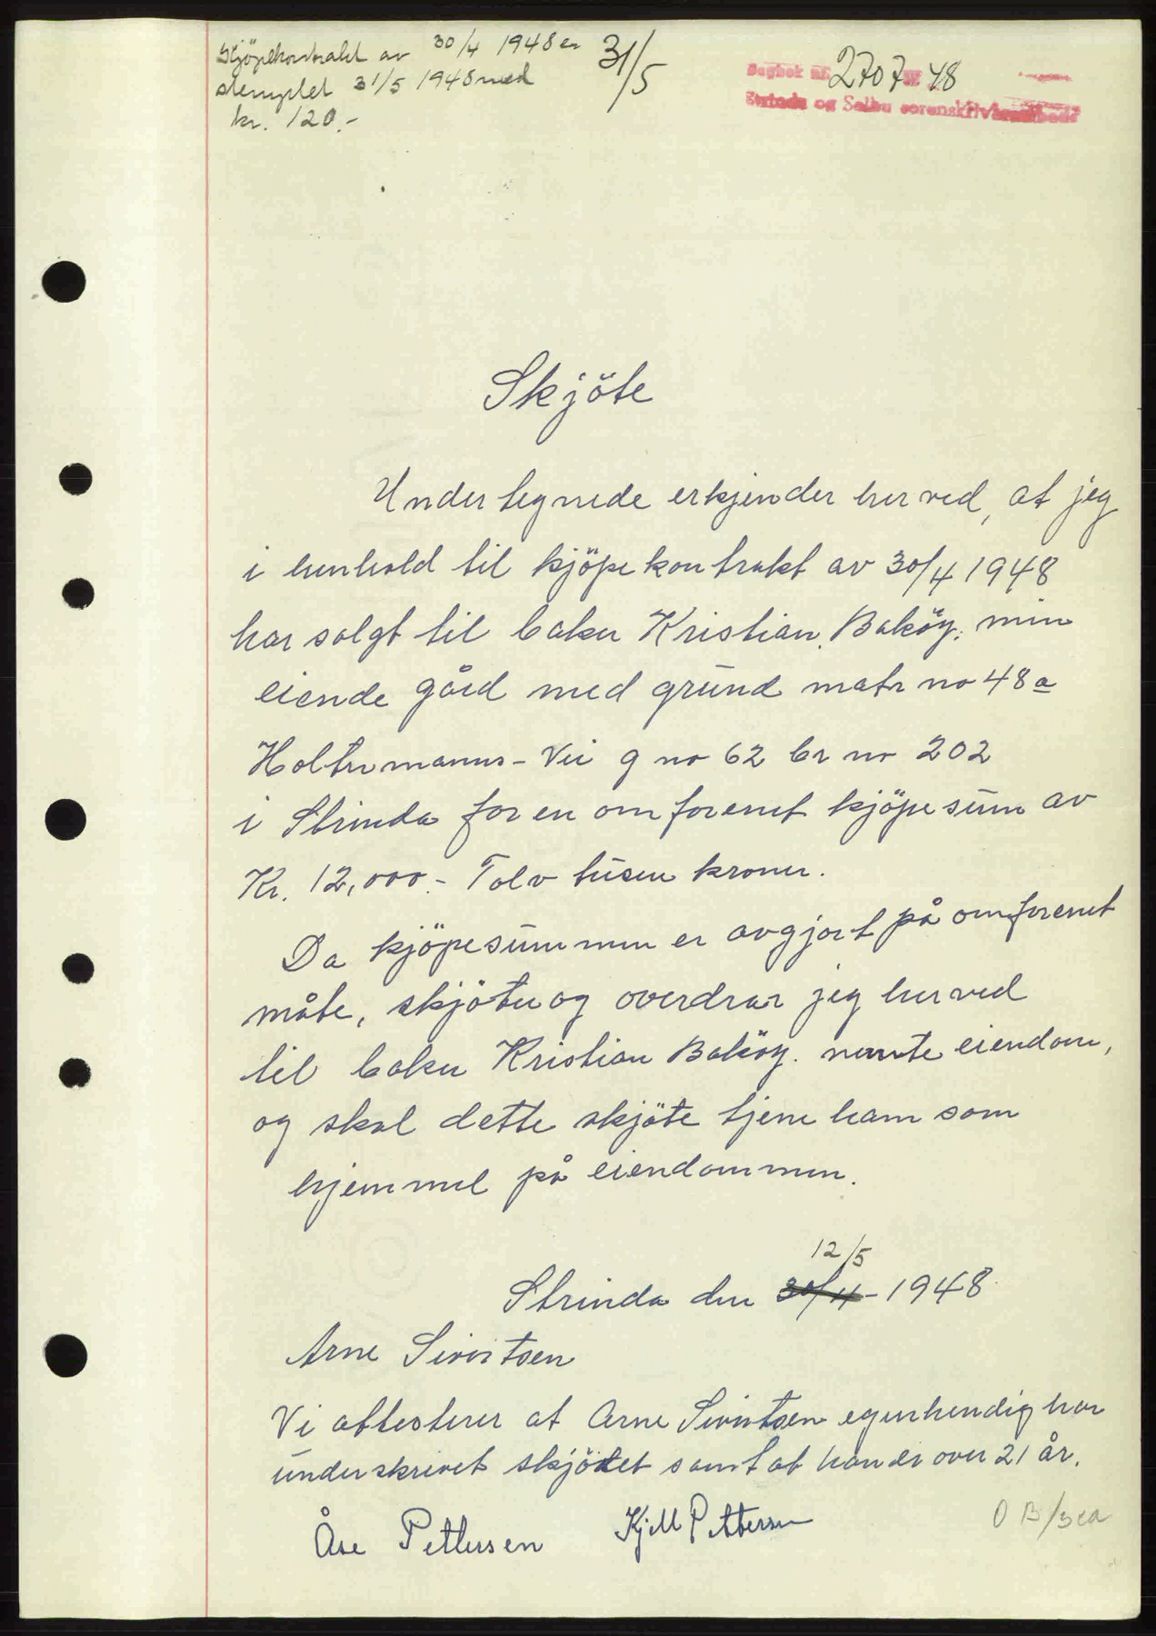 Kjöpekontrakt av 30/4 1948 er
stemplet 31/5 1948 med
kr. 120.-
31/5
Dagbok nr. 2707 48
Strinda og Selbu sorenskriverembede
Skjöte
Undertegnede erkjender herved, at jeg
i henhold til kjöpekontrakt av 30/4 1948
har solgt til baker Kristian Baköy. min
eiende gård med grund matr no 48a
Holtermanns-Vei g no 62 br no 202
i Strinda for en omforenet kjöpesum av
Kr. 12,000.- Tolv tusen kroner.
Da kjöpesummen er avgjort på omforenet
måte, skjöter og overdrar jeg herved
til baker Kristian Baköy. nevnte eiendom,
og skal dette skjöte tjene ham som
hjemmel på eiendommen.
12/5
Strinda den 30/4-1948.
Arne Sivertsen
Vi attesterer at Arne Sivertsen egenhendig har
underskrevet skjötet samt at han er over 21 år.
Åse Pettersen Kjell Pettersen